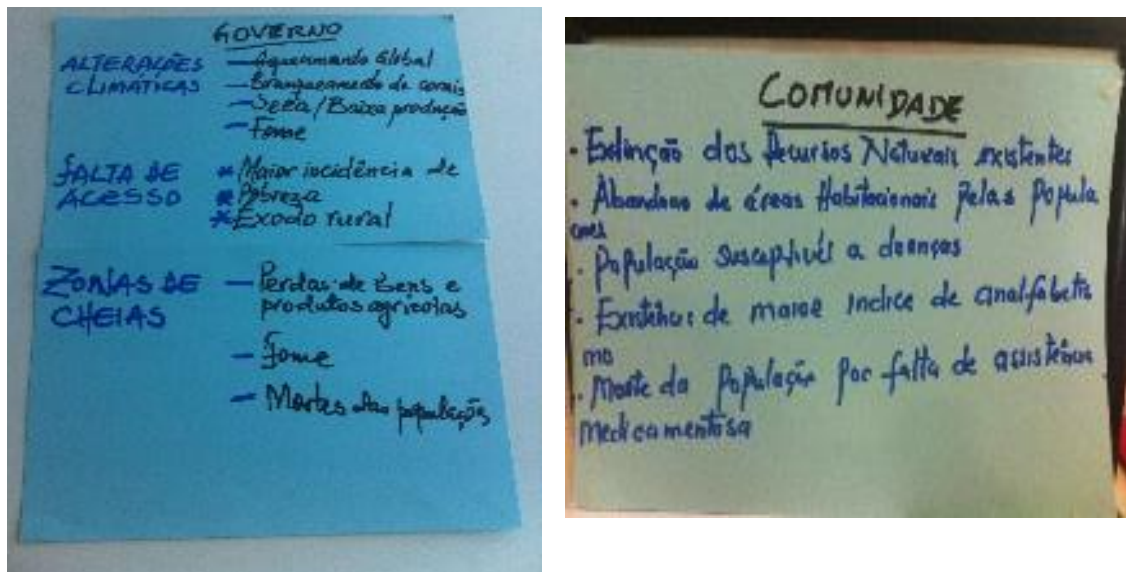 GOVERNO
ALTERAÇÕES — Aquecimento Global
CLIMÁTICAS — Branqueamento de corais
— Seca/Baixa produção
— Fome
FALTA DE * Maior incidência de
ACESSO * Pobreza
* Êxodo rural
ZONAS DE — Perdas de Bens e
CHEIAS produtos agrícolas
— Fome
— Mortes das populações
COMUNIDADE
· Extinção dos Recursos Naturais existentes
· Abandono de áreas Habitacionais Pelas Popula
ções
· População susceptivél a doenças
· Existência de maior indice de analfabetis
mo
· Morte da População por falta de assistência
medicamentosa